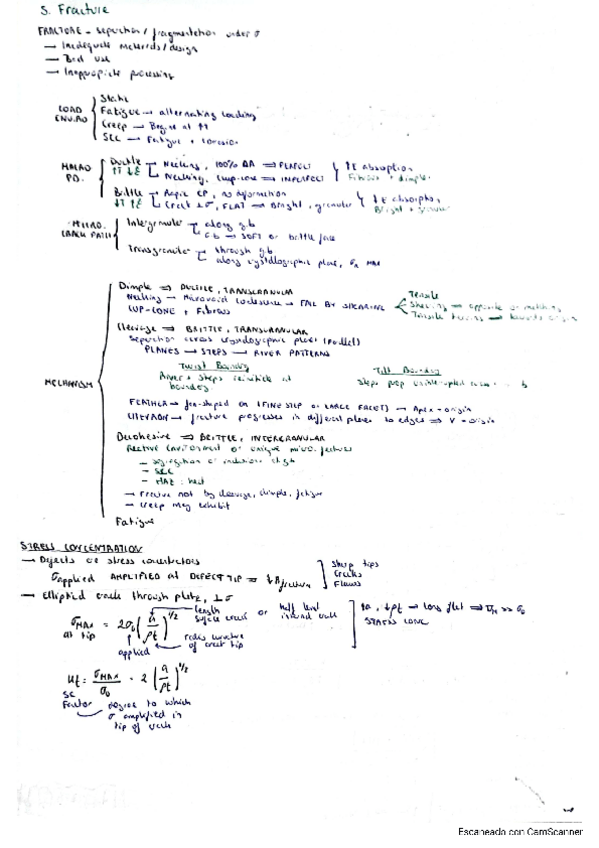 5. Fracture
FRACTURE - separation / fragmentation under σ
→ Inadequate materials/design
→ Bad use
→ Inappropriate processing
LOAD ENVIRO
Static
Fatigue → alternating loading
Creep →
SCC → Fatigue + corrosion
MACRO
Ductile
Necking, 100% ΔA ⇒ PERFECT
Necking, cup-cone ⇒ IMPERFECT
↑E absorption
Fibrous + dimples
Brittle
Rapid CP, no deformation
Crack ⊥σ, FLAT → Bright, granular
↓E absorption
Bright + granular
MICRO. CRACK PATH
Intergranular
along g.b
SOFT or brittle
Transgranular
through g.b
along crystallographic plane, σn MAX
MECHANISM
Dimple ⇒ DUCTILE, TRANSGRANULAR
Necking → Microvoid coalescence → FAIL BY SHEARING
CUP-CONE + Fibrous
Tensile
Shearing → opposite or matching
Tensile tearing → towards origin
Cleavage ⇒ BRITTLE, TRANSGRANULAR
Separation across crystallographic planes (parallel)
PLANES → STEPS → RIVER PATTERNS
Twist Boundary
River + steps at boundary
Tilt Boundary
steps prop
FEATHER → fan-shaped or (FINE STEP on LARGE FACET) → Apex = origin
CHEVRON → fracture progresses in different planes to edges ⇒ V = origin
Decohesive ⇒ BRITTLE, INTERGRANULAR
Reactive environment or unique micro. features
→ segregation or inclusions at gb
→ SCC
→ HAZ : heat
→ Fracture not by cleavage, dimple, fatigue
→ Creep may exhibit
Fatigue
STRESS CONCENTRATION
→ Defects or stress concentrators
σapplied AMPLIFIED at DEFECT TIP ⇒ ↓σfracture
Sharp tips
Cracks
Flaws
→ Elliptical crack through plate, ⊥σ
σMAX at tip = 2σ0 (a/ρt)^1/2
length surface crack or half length internal crack
applied
radius curvature of crack tip
↑a, ↓ρt → long, flat ⇒ σM >> σ0
STRESS CONC
Kt = σMAX/σ0 = 2 (a/ρt)^1/2
SC Factor
degree to which σ amplified in tip of crack
Escaneado con CamScanner